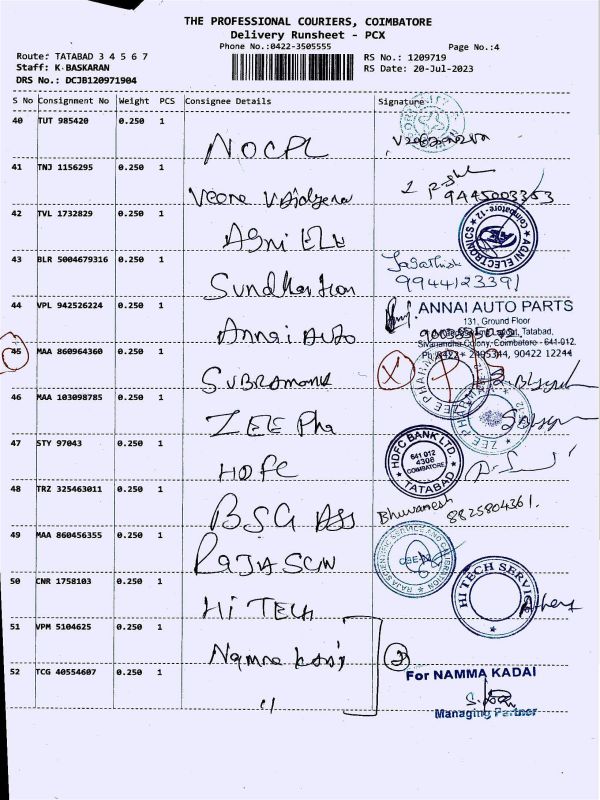 THE PROFESSIONAL COURIERS, COIMBATORE
Delivery Runsheet - PCX
Phone No.:0422-3505555
Page No.:4
Route: TATABAD 3 4 5 6 7
RS No.: 1209719
Staff: K BASKARAN
RS Date: 20-Jul-2023
DRS No.: DCJB120971904
S No Consignment No Weight PCS Consignee Details Signature
40 TUT 985420 0.250 1
NOCPL
41 TNJ 1156295 0.250 1
9445003353
42 TVL 1732829 0.250 1
Agni Ele
COIMBATORE-12. AGNI ELECTRONICS
43 BLR 5004679316 0.250 1
9944123391
44 VPL 942526224 0.250 1
Annai Auto
ANNAI AUTO PARTS
131, Ground Floor
Tatabad,
Sivanandha Colony, Coimbatore - 641-012.
Ph:0422 - 2495344, 90422 12244
45 MAA 860964360 0.250 1
ZEE PHARMA
46 MAA 103098785 0.250 1
ZEE Pha
ZEE PHARMA
47 STY 97043 0.250 1
HDFC
HDFC BANK LTD. TATABAD
641 012
4306
COIMBATORE
48 TRZ 325463011 0.250 1
BSG Ass
Bhuvanesh
8825804361.
49 MAA 860456355 0.250 1
RAJA SCIN
RAJA SCIENTIFIC SERVICE AND CALIBRATION
CBE-12
50 CNR 1758103 0.250 1
Hi TECH
HI TECH SERVICE
51 VPM 5104625 0.250 1
2
52 TCG 40554607 0.250 1
"
For NAMMA KADAI
Managing Partner